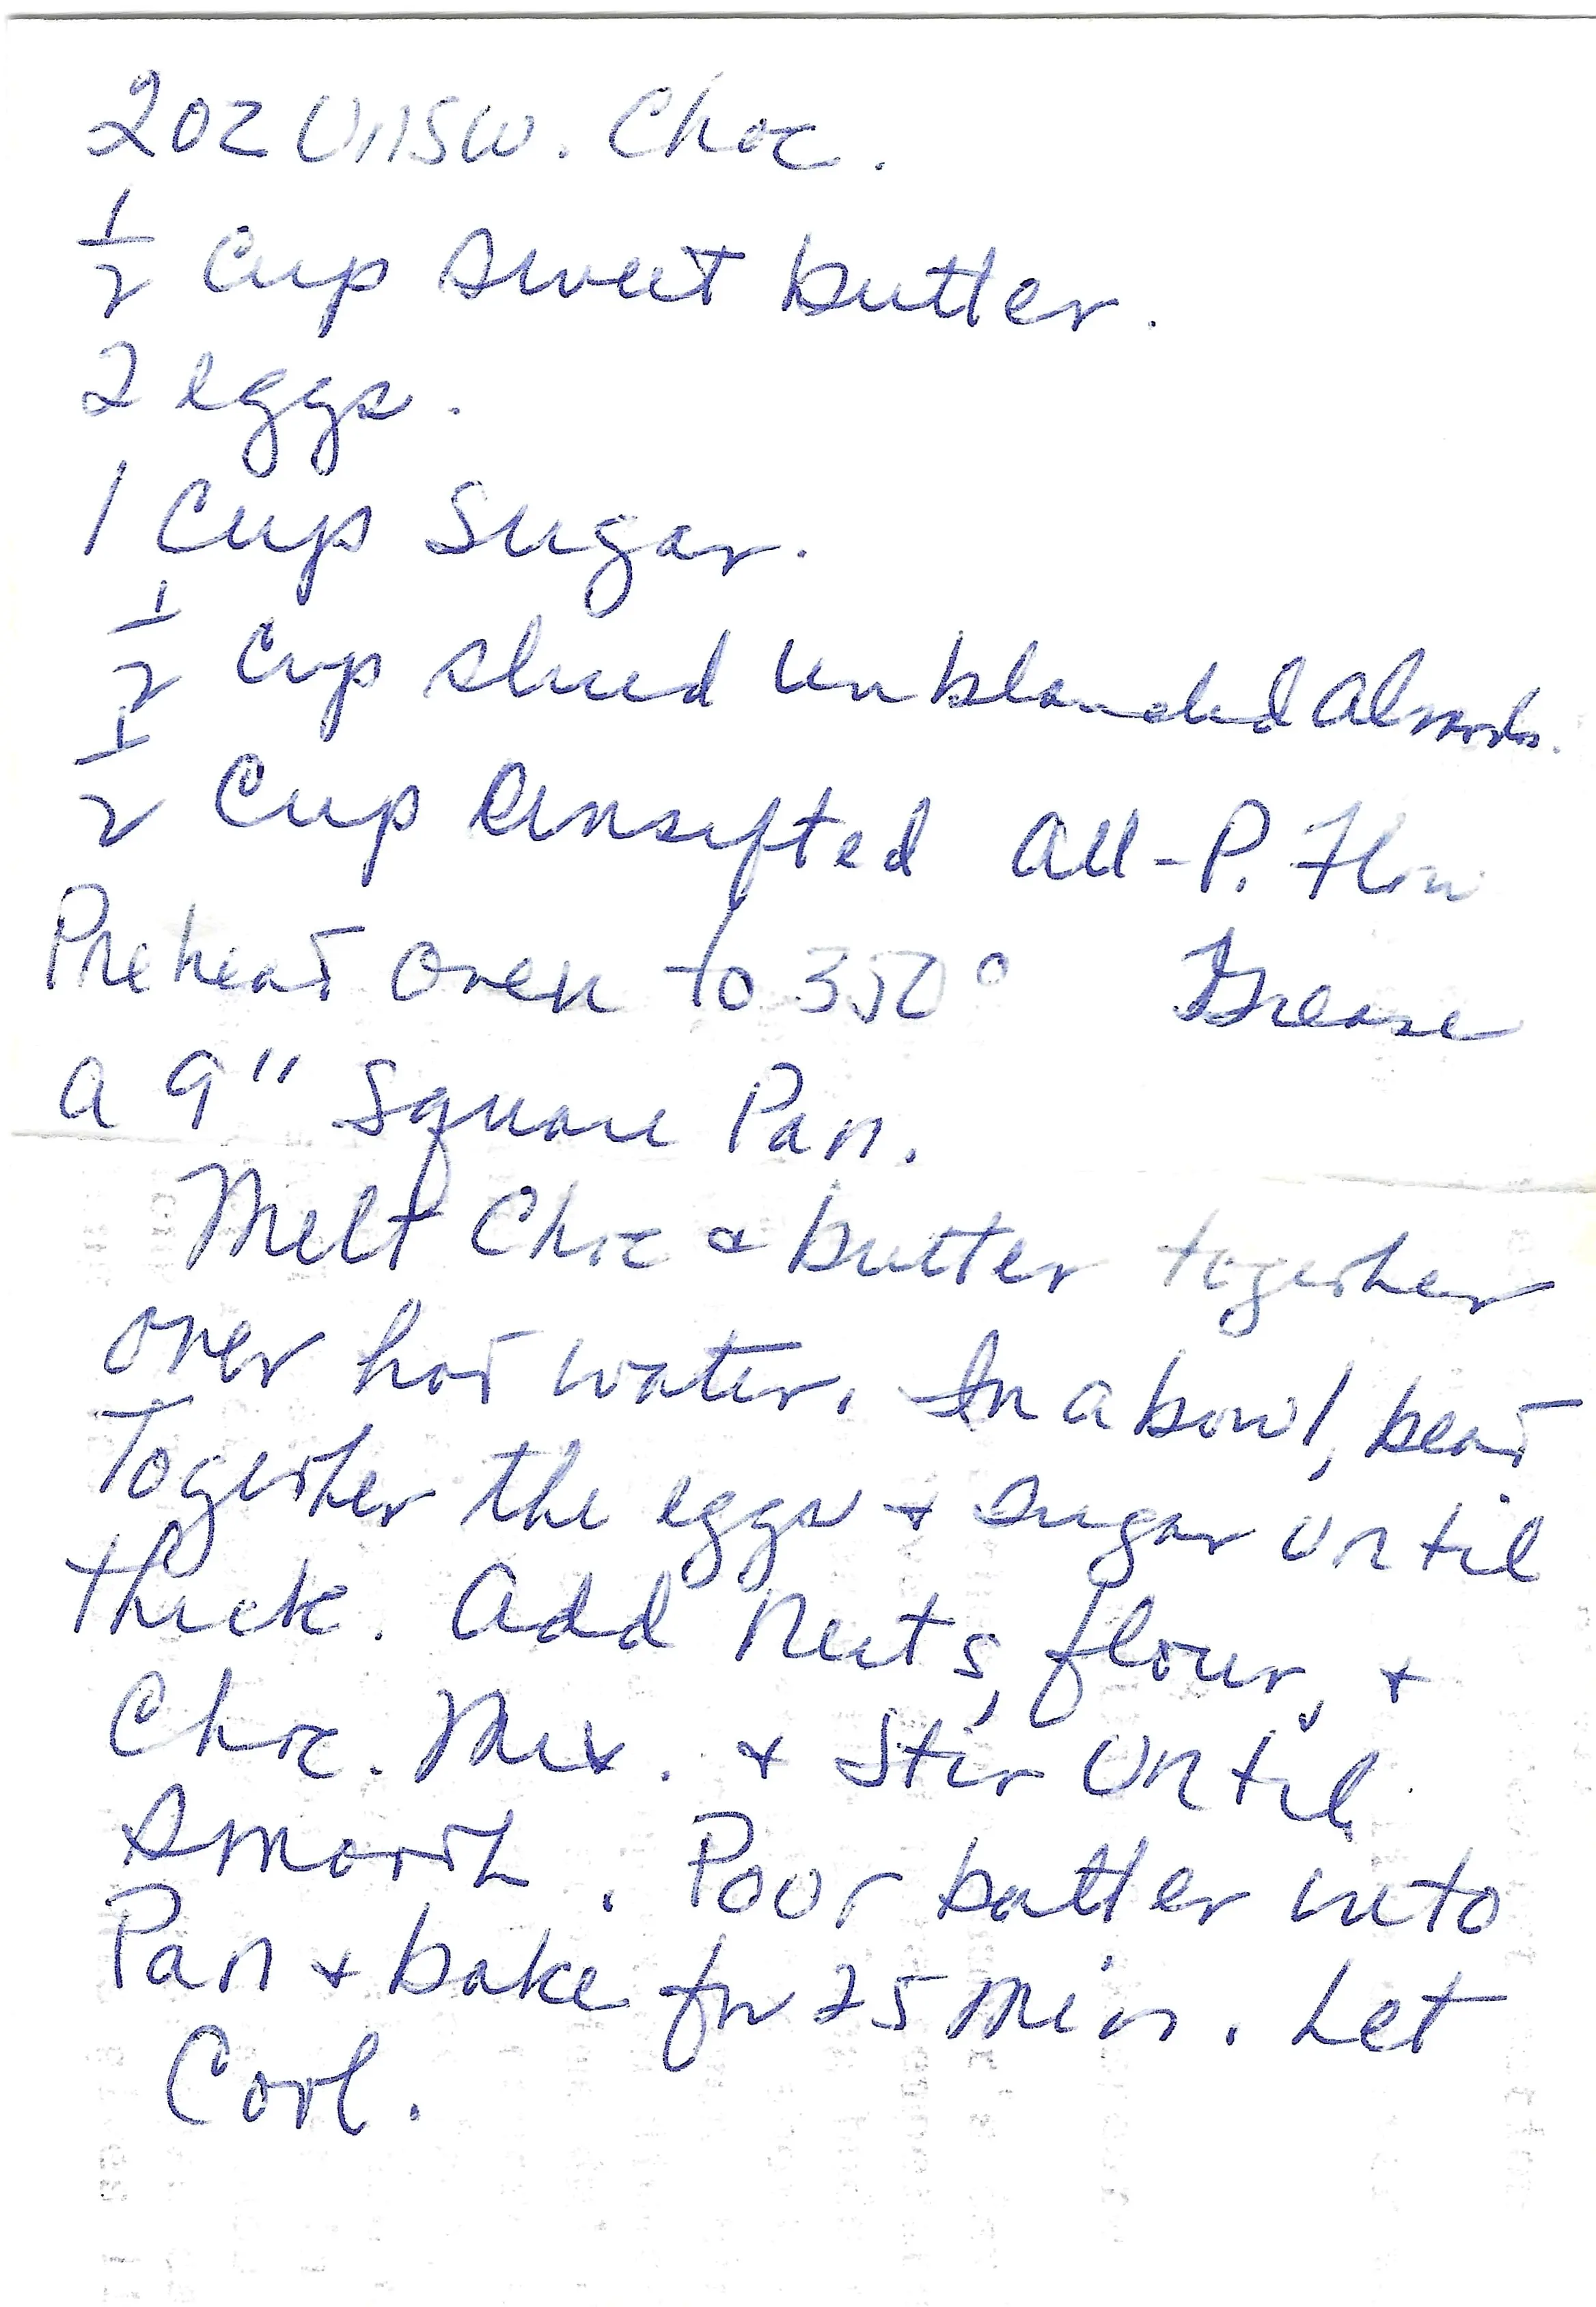 2 oz Unsw. Choc.
1/2 Cup sweet butter.
2 eggs.
1 Cup Sugar.
1/2 Cup sliced unblanched Almonds.
1/2 Cup Unsifted All-P. Flour
Preheat oven to 350° Grease
a 9" Square Pan.
Melt Choc & butter together
over hot water. In a bowl, beat
Together the eggs + sugar until
thick. Add Nuts, flour, +
Choc. Mix. + Stir Until
Smooth. Pour batter into
Pan + bake for 25 Min. Let
Cool.